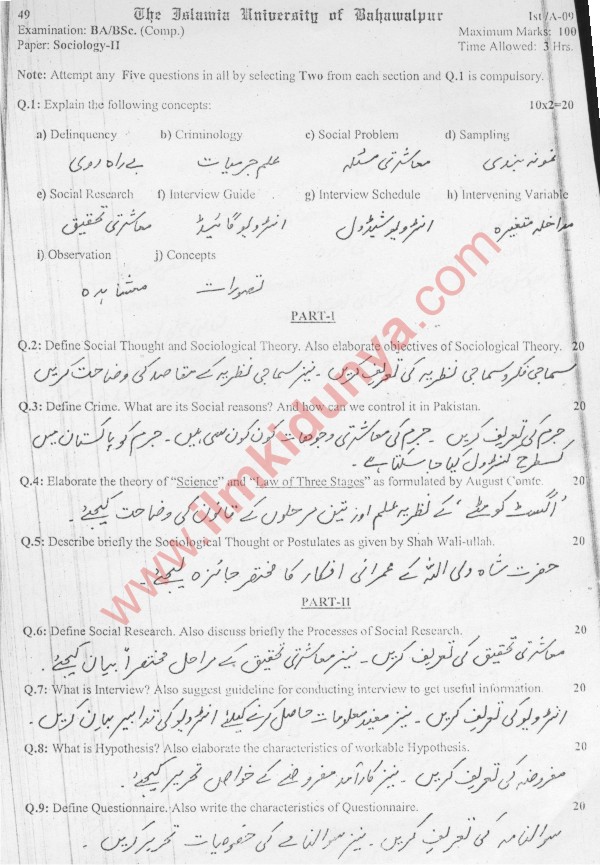 49 The Islamia University of Bahawalpur 1st/A-09
Examination: BA/BSc. (Comp.) Maximum Marks: 100
Paper: Sociology-II Time Allowed: 3 Hrs.
Note: Attempt any Five questions in all by selecting Two from each section and Q.1 is compulsory.
Q.1: Explain the following concepts: 10x2=20
a) Delinquency b) Criminology c) Social Problem d) Sampling
بے راہ روی علم جرمیات معاشرتی مسئلہ نمونہ بندی
e) Social Research f) Interview Guide g) Interview Schedule h) Intervening Variable
معاشرتی تحقیق انٹرویو گائیڈ انٹرویو شیڈول مداخلہ متغیرہ
i) Observation j) Concepts
مشاہدہ تصورات
PART-I
Q.2: Define Social Thought and Sociological Theory. Also elaborate objectives of Sociological Theory. 20
سماجی فکر و سماجی نظریہ کی تعریف کریں۔ نیز سماجی نظریہ کے مقاصد کی وضاحت کریں
Q.3: Define Crime. What are its Social reasons? And how can we control it in Pakistan. 20
جرم کی تعریف کریں۔ جرم کی معاشرتی وجوہات کون کون سی ہیں۔ جرم کو پاکستان میں
کسطرح کنٹرول کیا جا سکتا ہے۔
Q.4: Elaborate the theory of “Science” and “Law of Three Stages” as formulated by August Comte. 20
'اگسٹ کومٹے' کے نظریہ علم اور تین مرحلوں کے قانون کی وضاحت کیجئے۔
Q.5: Describe briefly the Sociological Thought or Postulates as given by Shah Wali-ullah. 20
حضرت شاہ ولی اللہ کے عمرانی افکار کا مختصر جائزہ لیجئے۔
PART-II
Q.6: Define Social Research. Also discuss briefly the Processes of Social Research. 20
معاشرتی تحقیق کی تعریف کریں۔ نیز معاشرتی تحقیق کے مراحل مختصراً بیان کیجئے۔
Q.7: What is Interview? Also suggest guideline for conducting interview to get useful information. 20
انٹرویو کی تعریف کریں۔ نیز مفید معلومات حاصل کرنے کیلئے انٹرویو کی تدابیر بیان کریں۔
Q.8: What is Hypothesis? Also elaborate the characteristics of workable Hypothesis. 20
مفروضہ کی تعریف کریں۔ نیز کارآمد مفروضے کے خواص تحریر کیجئے۔
Q.9: Define Questionnaire. Also write the characteristics of Questionnaire. 20
سوالنامہ کی تعریف کریں۔ نیز سوالنامے کی خصوصیات تحریر کریں۔
www.ilmkidunya.com